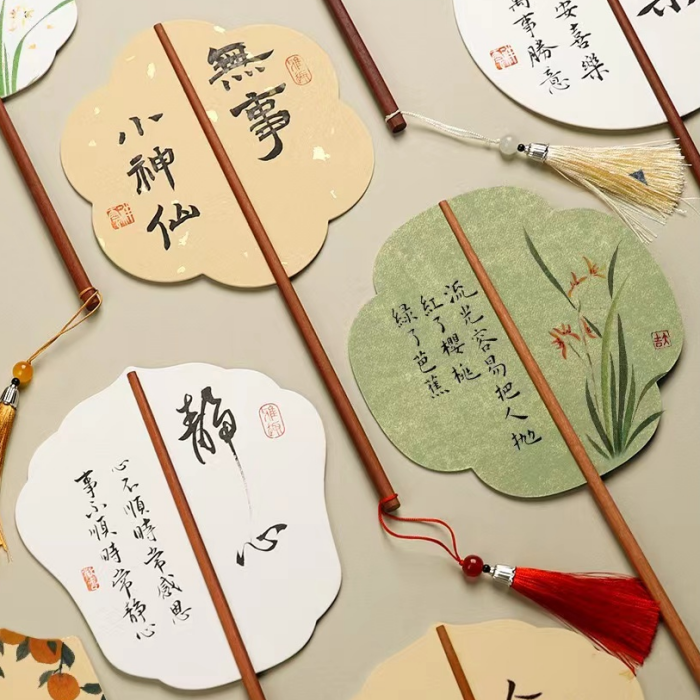 無事
小神仙
安喜樂
事勝意
流光容易把人抛
紅了櫻桃
綠了芭蕉
靜心
心不順時常感恩
事不順時常靜心